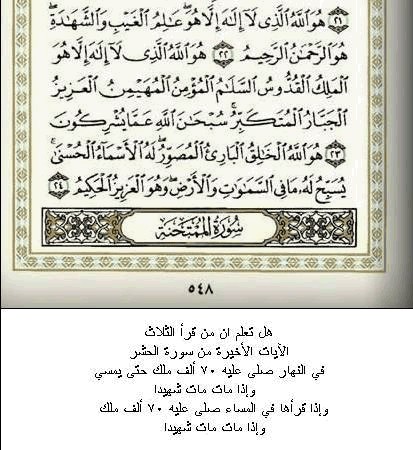 ﴿٢١﴾ هُوَ ٱللَّهُ ٱلَّذِى لَآ إِلَٰهَ إِلَّا هُوَ ۖ عَٰلِمُ ٱلْغَيْبِ وَٱلشَّهَٰدَةِ ۖ
هُوَ ٱلرَّحْمَٰنُ ٱلرَّحِيمُ ﴿٢٢﴾ هُوَ ٱللَّهُ ٱلَّذِى لَآ إِلَٰهَ إِلَّا هُوَ
ٱلْمَلِكُ ٱلْقُدُّوسُ ٱلسَّلَٰمُ ٱلْمُؤْمِنُ ٱلْمُهَيْمِنُ ٱلْعَزِيزُ
ٱلْجَبَّارُ ٱلْمُتَكَبِّرُ ۚ سُبْحَٰنَ ٱللَّهِ عَمَّا يُشْرِكُونَ
﴿٢٣﴾ هُوَ ٱللَّهُ ٱلْخَٰلِقُ ٱلْبَارِئُ ٱلْمُصَوِّرُ ۖ لَهُ ٱلْأَسْمَآءُ ٱلْحُسْنَىٰ ۚ
يُسَبِّحُ لَهُۥ مَا فِى ٱلسَّمَٰوَٰتِ وَٱلْأَرْضِ ۖ وَهُوَ ٱلْعَزِيزُ ٱلْحَكِيمُ ﴿٢٤﴾
سُورَةُ المُمْتَحنَة
٥٤٨
هل تعلم ان من قرأ الثلاث
الآيات الأخيرة من سورة الحشر
في النهار صلى عليه ٧٠ ألف ملك حتى يمسي
وإذا مات مات شهيدا
وإذا قرأها في المساء صلى عليه ٧٠ ألف ملك
وإذا مات مات شهيدا